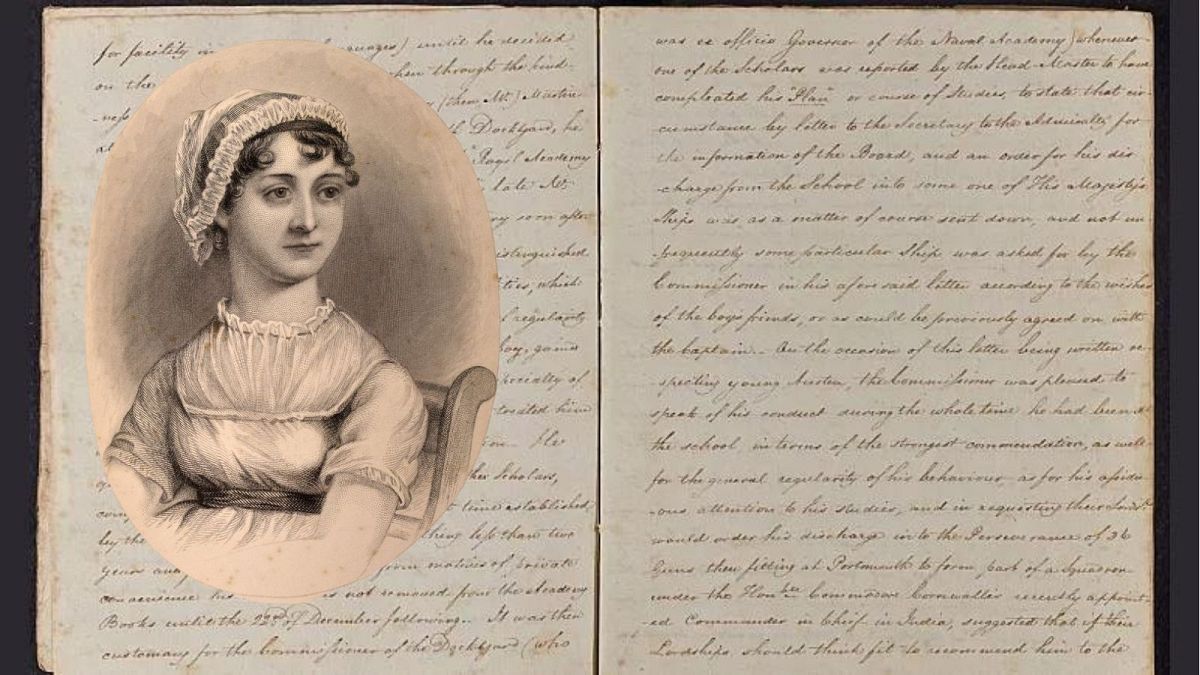 for facility in languages) until he decided
on the when through the kind-
-ness (then Mr.) Martin
Dockyard, he
Royl. Academy
late Mr.
very soon after
distinguished
ties, which
regularity
boy, gained
specially of
treated him
He
her Scholars,
time established
by the thing less than two
years and from motives of private
convenience his is not removed from the Academy
Books until the 22d. of December following.. It was then
customary for the Commissioner of the Dockyard (who
was ex officio Governor of the Naval Academy) whenever
one of the Scholars was reported by the Head-Master to have
compleated his "Plan" or course of Studies, to state that cir-
-cumstance by letter to the Secretary to the Admiralty for
the information of the Board, and an order for his dis
-charge from the School into some one of His Majesty's
Ships was as a matter of course sent down, and not un
-frequently some particular Ship was asked for by the
Commissioner in his aforesaid letter according to the wishes
of the boy's friends, or as could be previously agreed on with
the Captain.. On the occasion of this letter being written re
-specting young Austen, the Commissioner was pleased to
speak of his conduct during the whole time he had been at
the school in terms of the strongest commendation, as well
for the general regularity of his behaviour as for his assidu
-ous attention to his studies, and in requesting their Lordps.
would order his discharge into the Perseverance of 36
Guns then fitting at Portsmouth to form part of a Squadron
under the Honble. Commodore Cornwallis recently appoint-
-ed Commander in Chief in India, suggested that if their
Lordships should think fit to recommend him to the